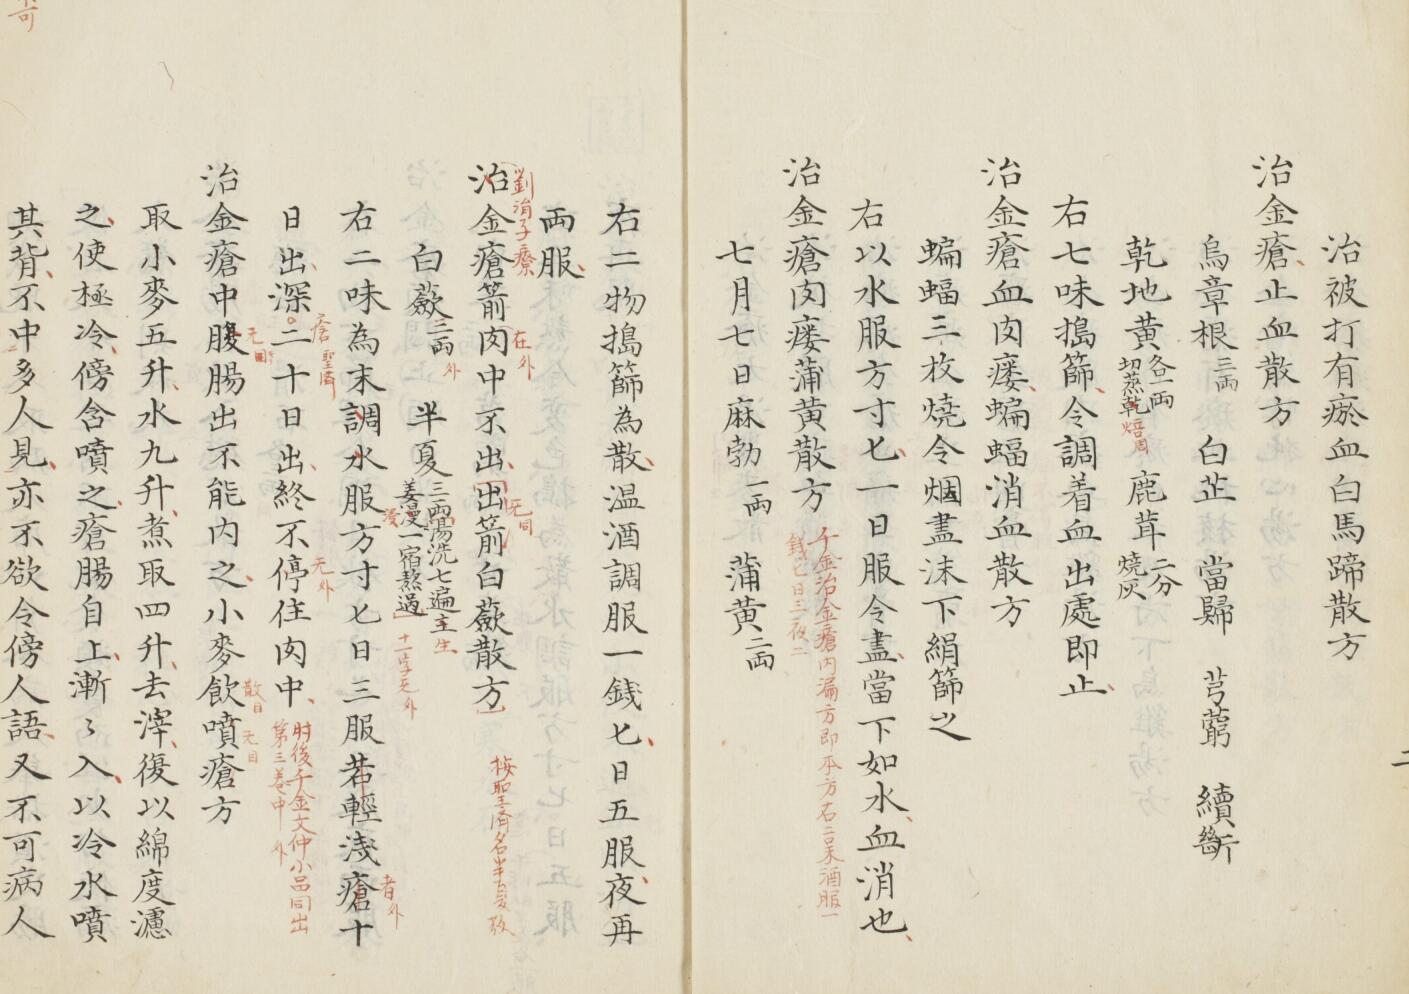 治被打有瘀血白馬蹄散方
治金瘡止血散方
烏章根三両 白芷 當歸 芎藭 續斷
乾地黄各一両切蒸乾焙周 鹿茸二分燒灰
右七味搗篩令調着血出處即止
治金瘡血肉瘻蝙蝠消血散方
蝙蝠三枚燒令烟盡沫下絹篩之
右以水服方寸匕一日服令盡當下如水血消也
治金瘡肉瘻蒲黄散方
千金治金瘡内漏方即本方右二味酒服一
錢匕日三夜二
七月七日麻勃一両 蒲黄二両
二
右二物搗篩為散温酒調服一錢匕日五服夜再
両服
劉涓子療
治金瘡箭肉中不出出箭白蘞散方
在外
无同
梅聖済名半夏散
白蘞三両 半夏三両湯洗七遍主姜漫一宿熬過
外
生
浸
十一字无外
右二味為末調水服方寸匕日三服若輕淺瘡十
者外
日出深二十日出終不停住肉中
瘡 聖済
无外
肘後千金文仲小品同出
第三巻中 外
治金瘡中腹腸出不能内之小麥飲噴瘡方
散目 无目
取小麥五升水九升煮取四升去滓復以綿度濾
之使極冷傍含噴之瘡腸自上漸々入以冷水噴
其背不中多人見亦不欲令傍人語又不可病人
可